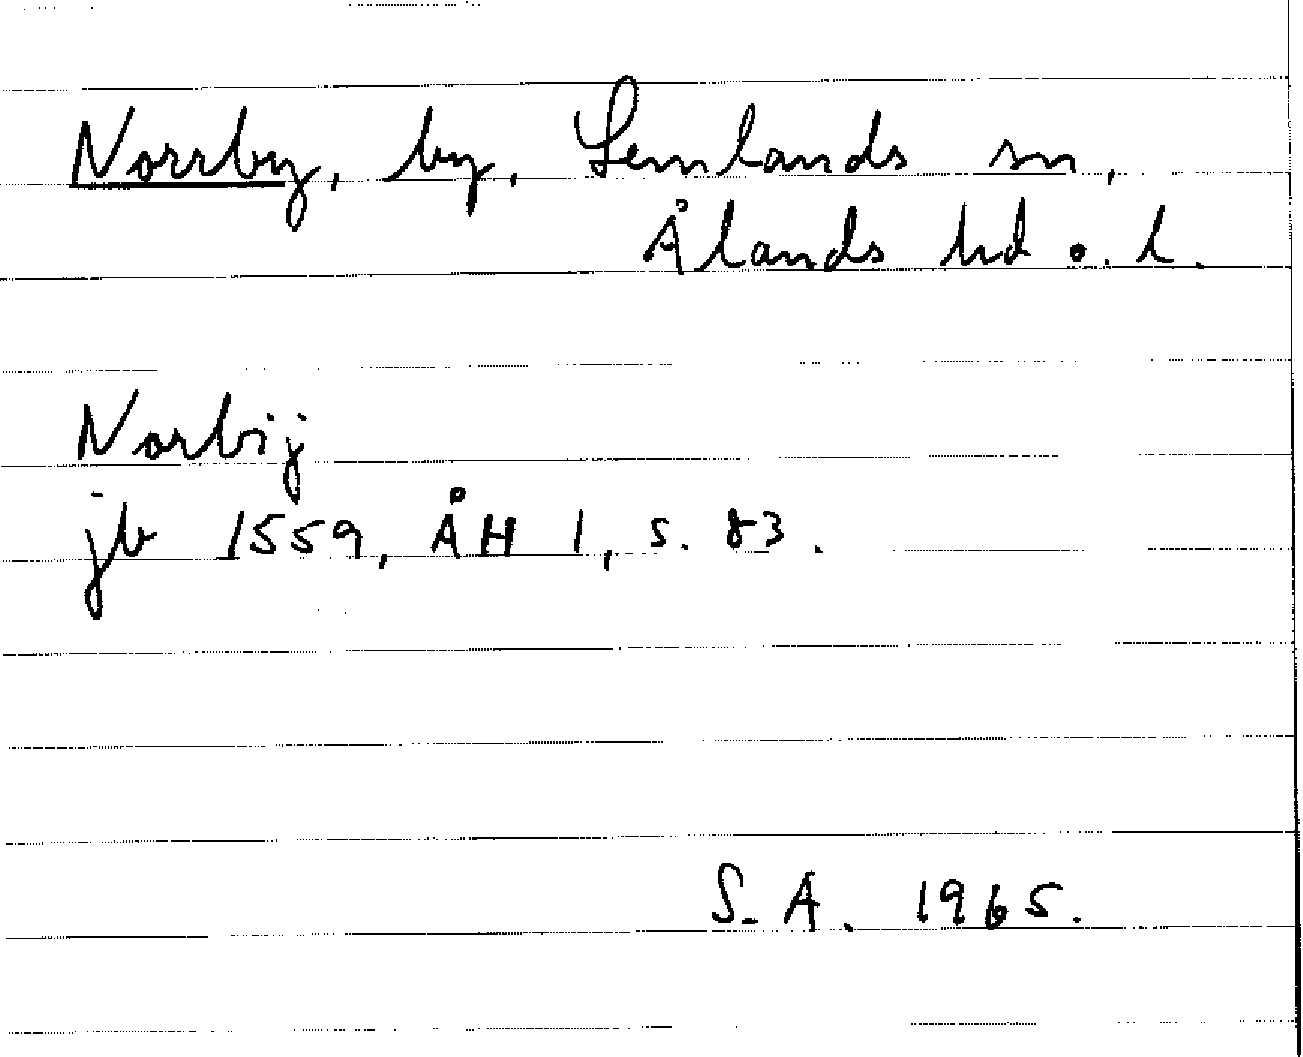 Norrby, by, Lemlands sn,
Ålands hd o. l.
Norbij
jb 1559, ÅH 1, s. 83.
S. A. 1965.